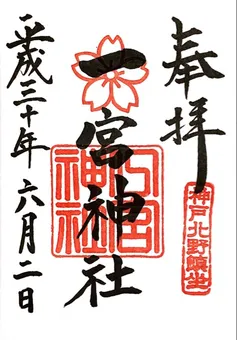 奉拝
神戸北野鎮坐
一宮神社
一宮神社
平成三十年六月二日